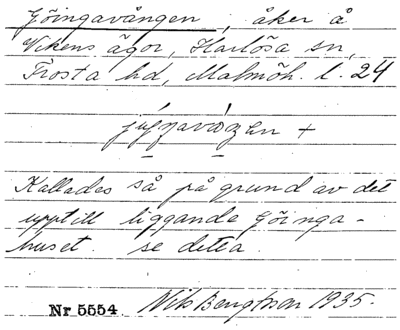 Göingavången, åker å
Vikens ägor, Harlösa sn,
Frosta hd, Malmöh. l. 24
Kallades så på grund av det
upptill liggande Göinga-
huset. se detta.
Nr 5554 Nils Bengtsson 1935.